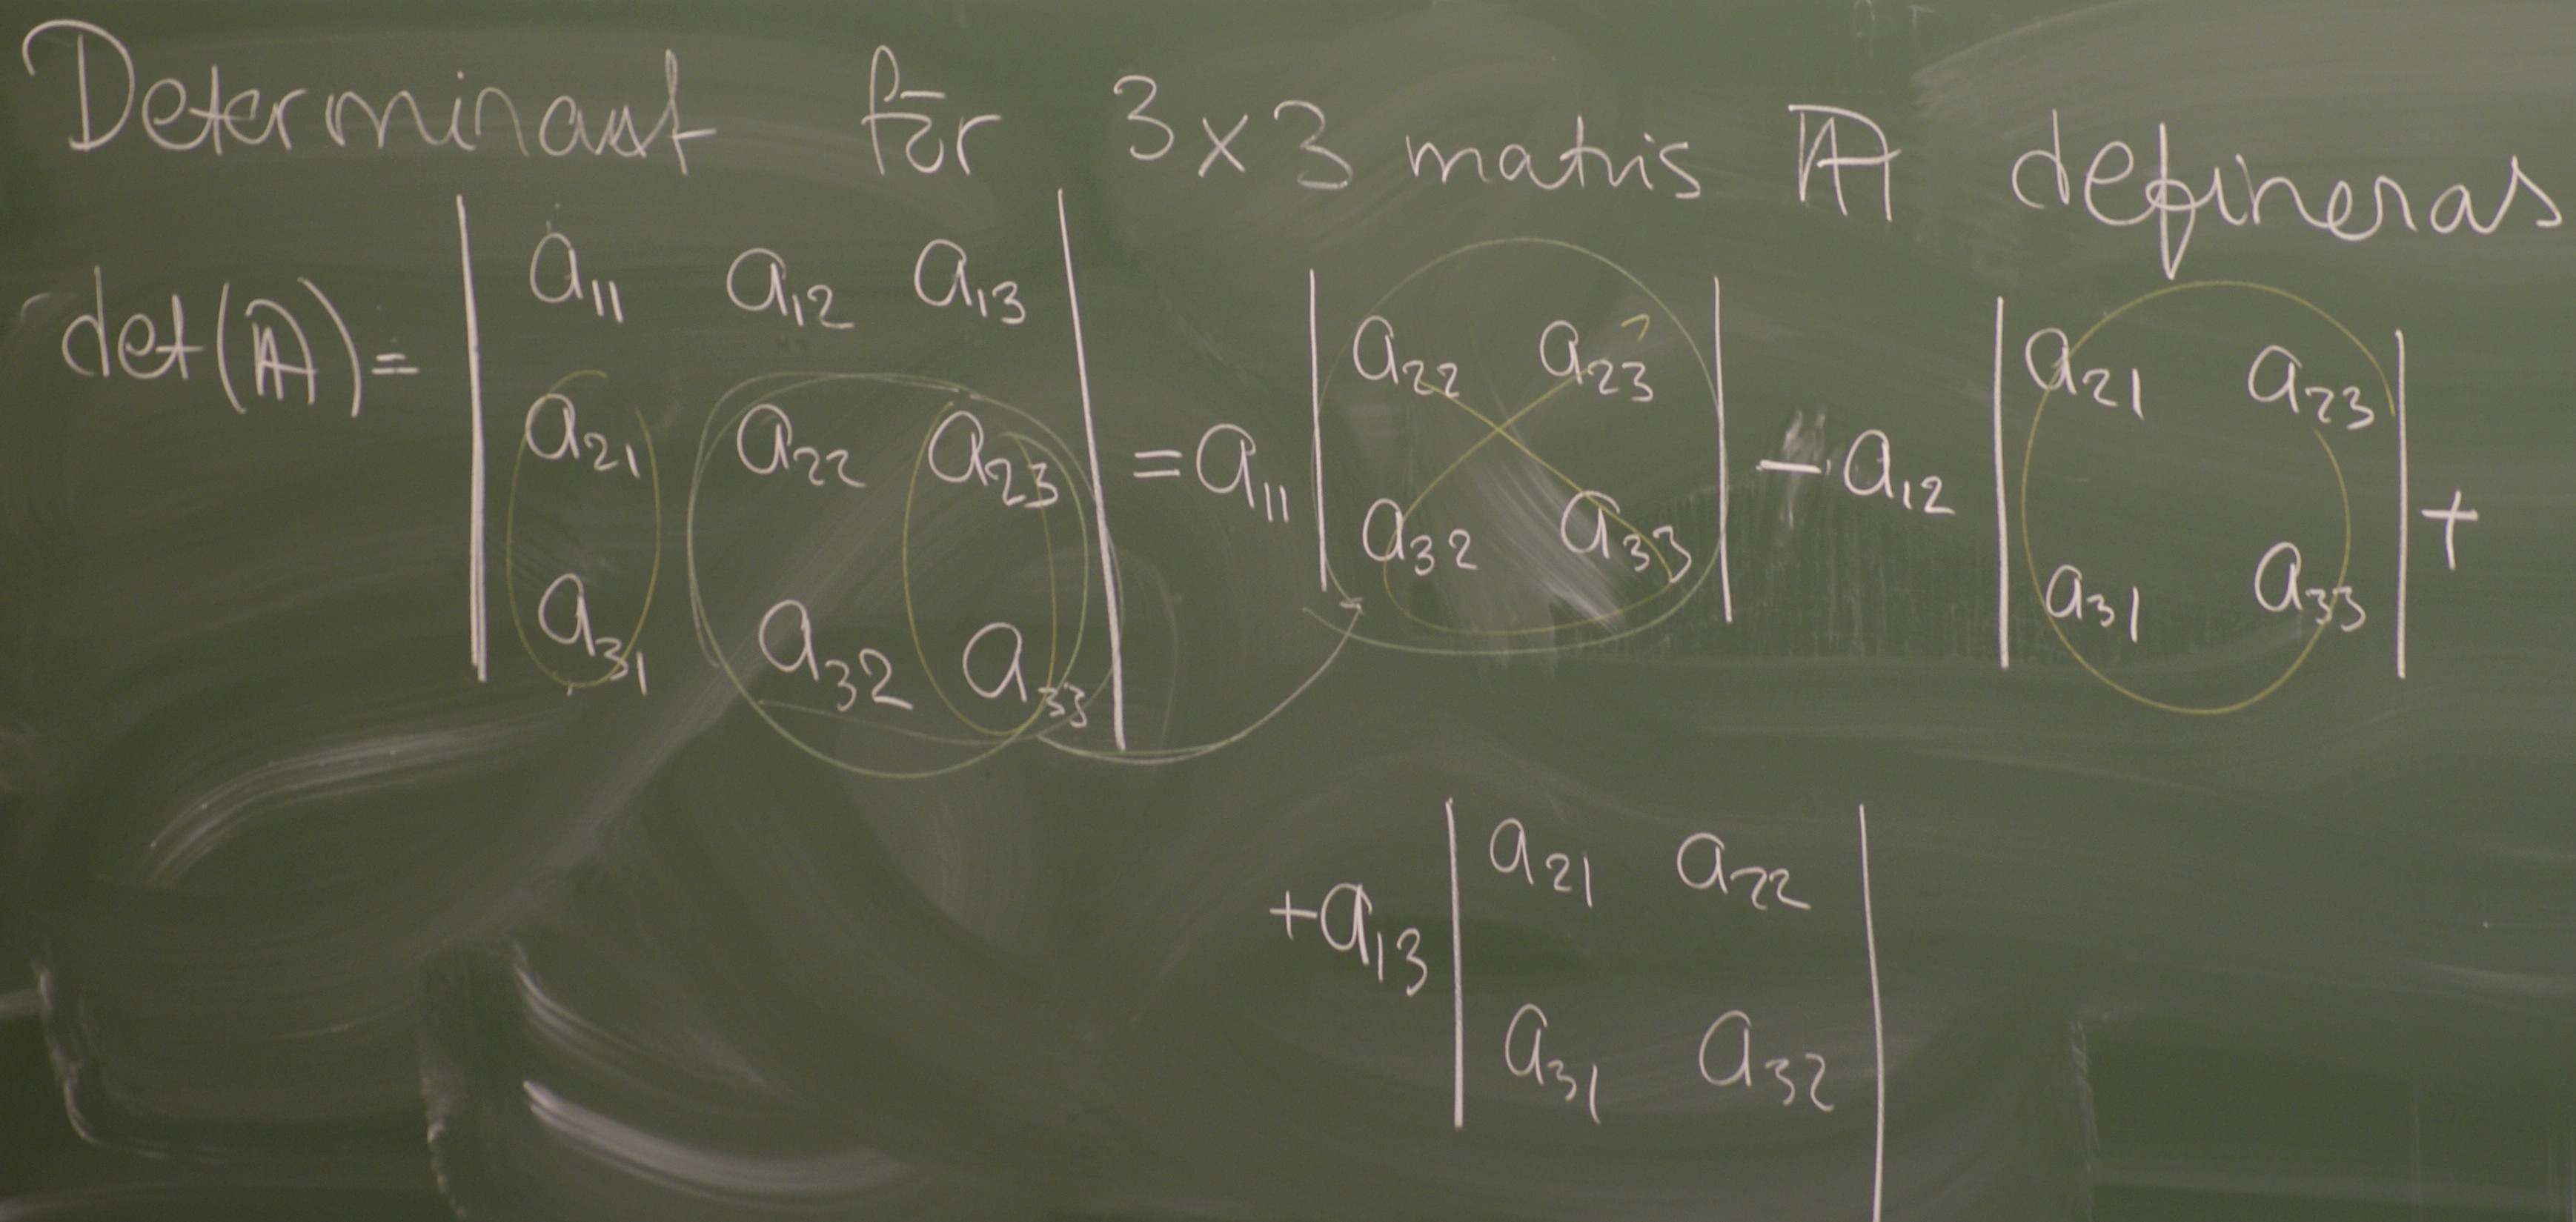 Determinant för 3x3 matris A defineras
det(A) = | a₁₁ a₁₂ a₁₃ |
| a₂₁ a₂₂ a₂₃ | = a₁₁ | a₂₂ a₂₃ | - a₁₂ | a₂₁ a₂₃ | +
| a₃₁ a₃₂ a₃₃ | | a₃₂ a₃₃ | | a₃₁ a₃₃ |
+ a₁₃ | a₂₁ a₂₂ |
| a₃₁ a₃₂ |